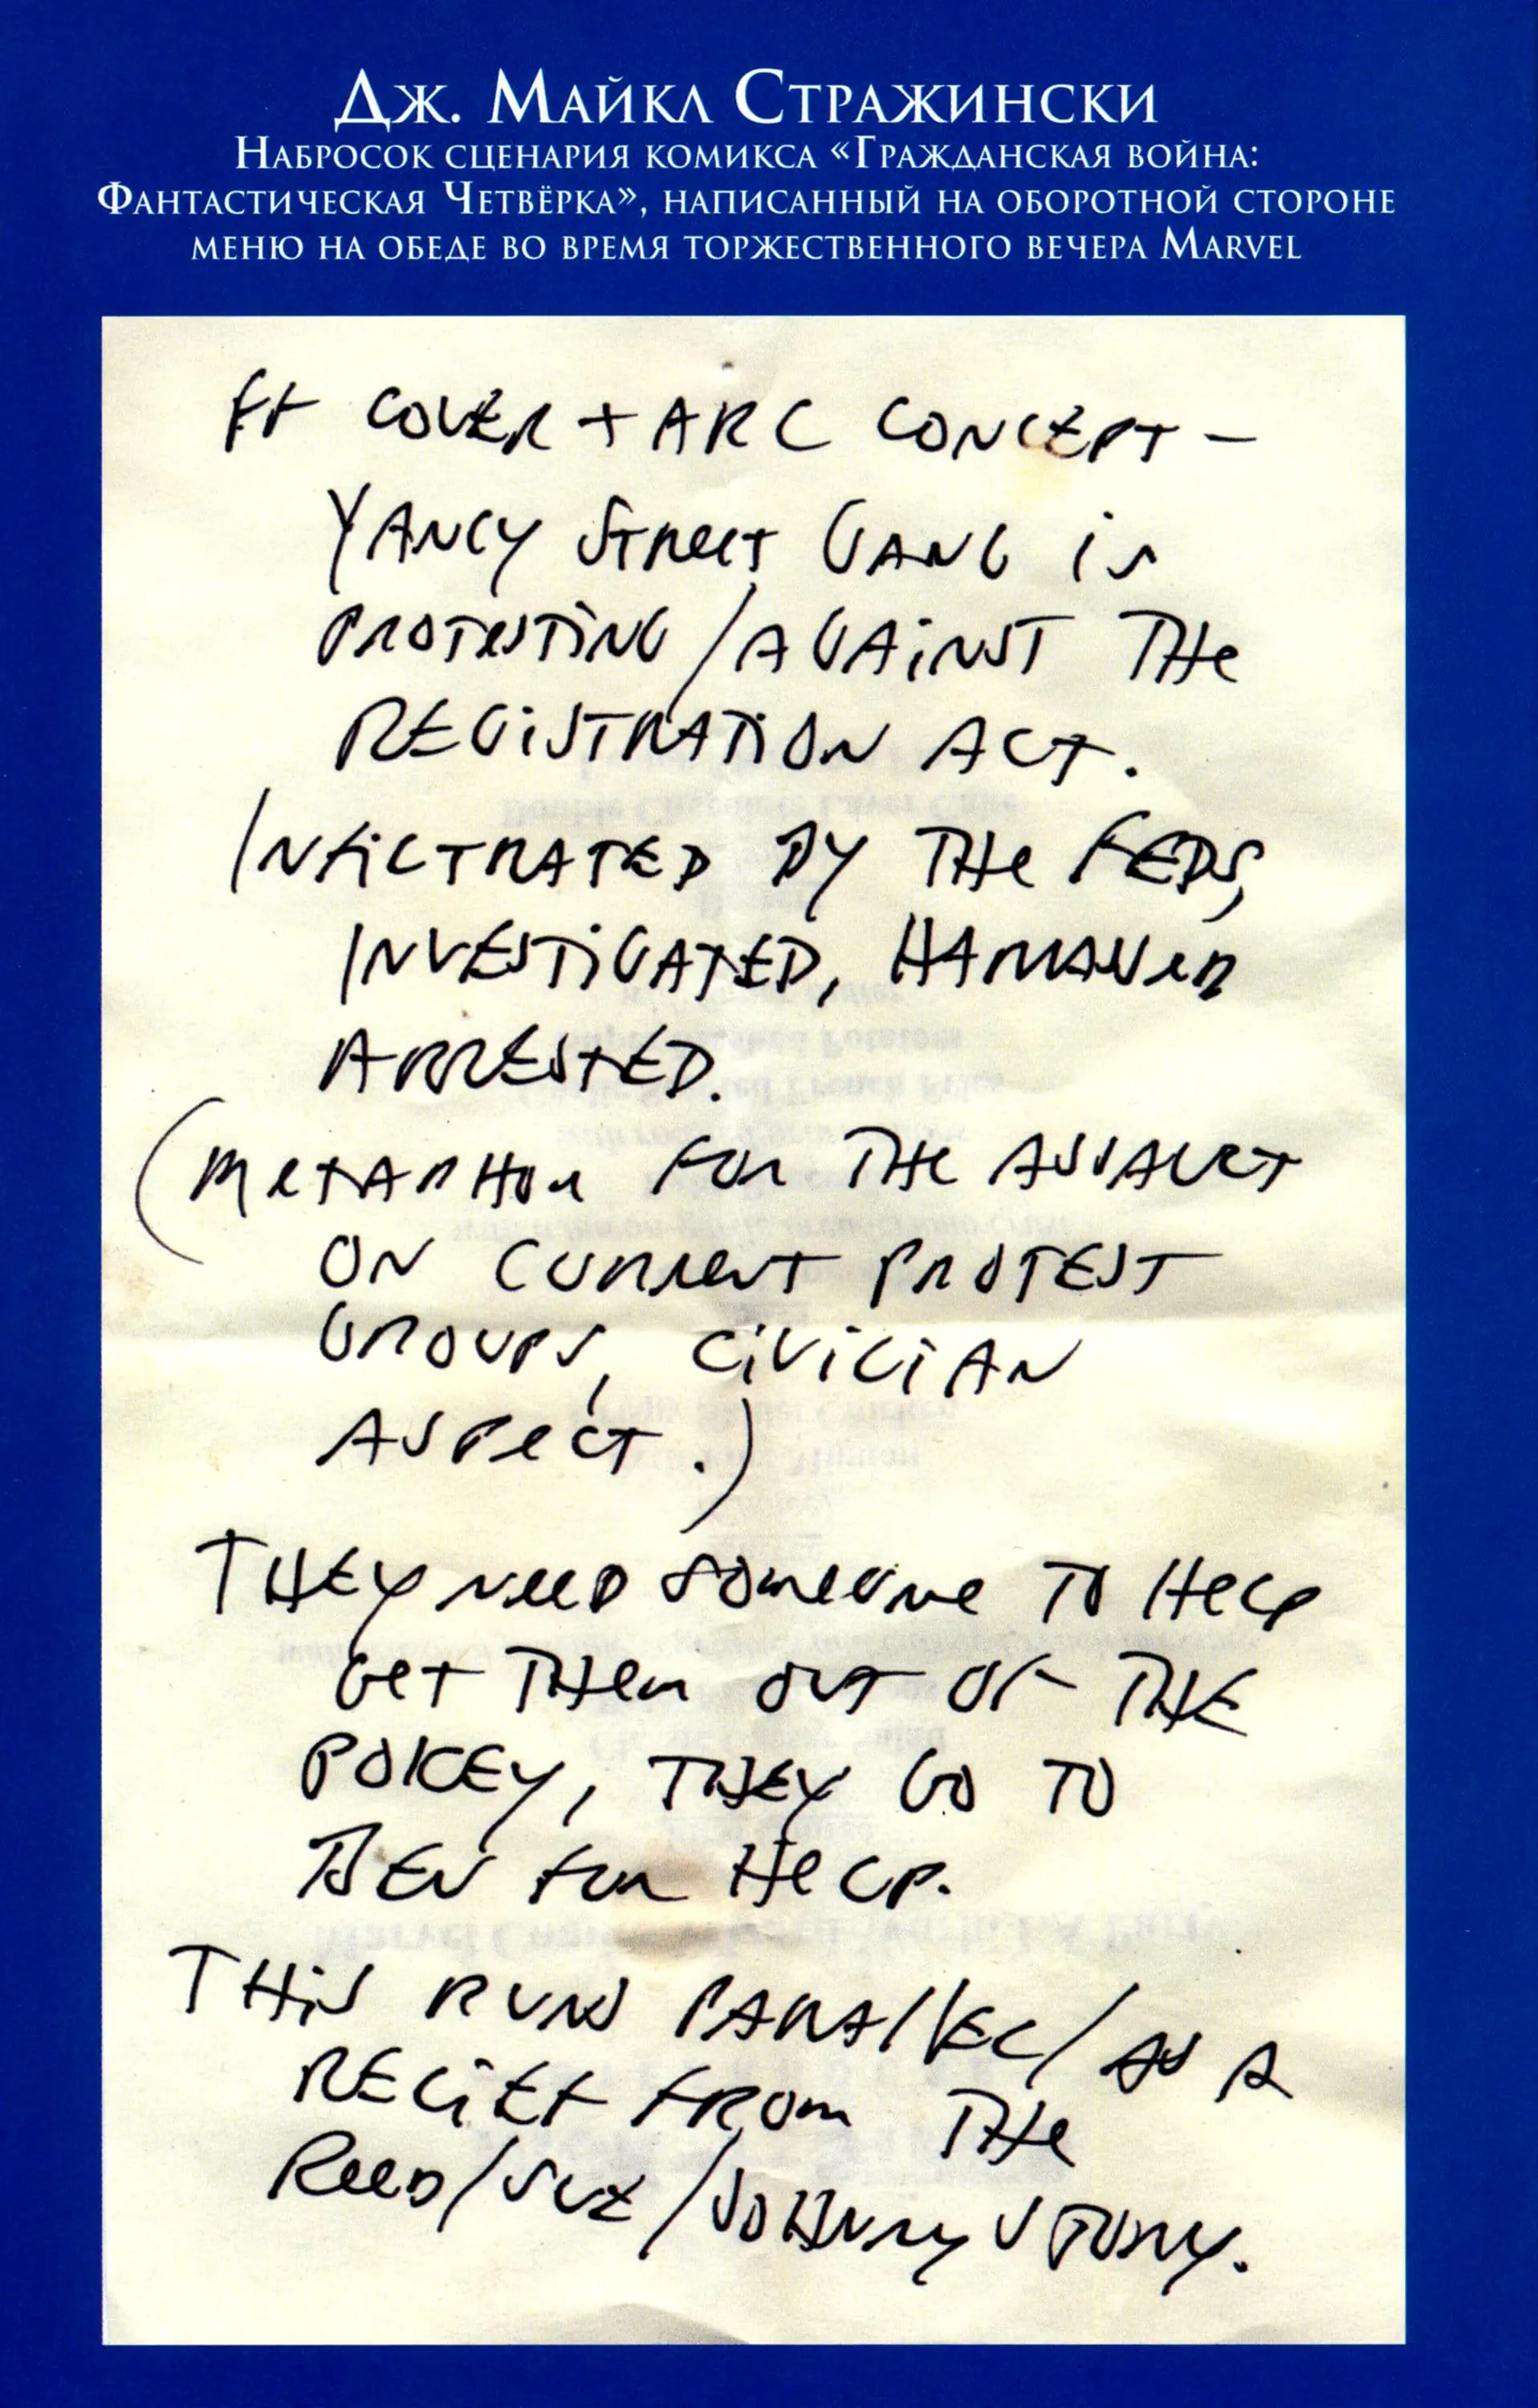 Дж. Майкл Стражински
Набросок сценария комикса «Гражданская война:
Фантастическая Четвёрка», написанный на оборотной стороне
меню на обеде во время торжественного вечера Marvel
FF COVER + ARC CONCEPT –
YANCY STREET GANG IS
PROTESTING / AGAINST THE
REGISTRATION ACT.
INFILTRATED BY THE FEDS,
INVESTIGATED, HARASSED
ARRESTED.
(METAPHOR FOR THE ASSAULT
ON CURRENT PROTEST
GROUPS, CIVILIAN
ASPECT.)
THEY NEED SOMEONE TO HELP
GET THEM OUT OF THE
POKEY, THEY GO TO
BEN FOR HELP.
THIS RUNS PARALLEL/AS A
RELIEF FROM THE
REED/SUE/JOHNNY STORY.